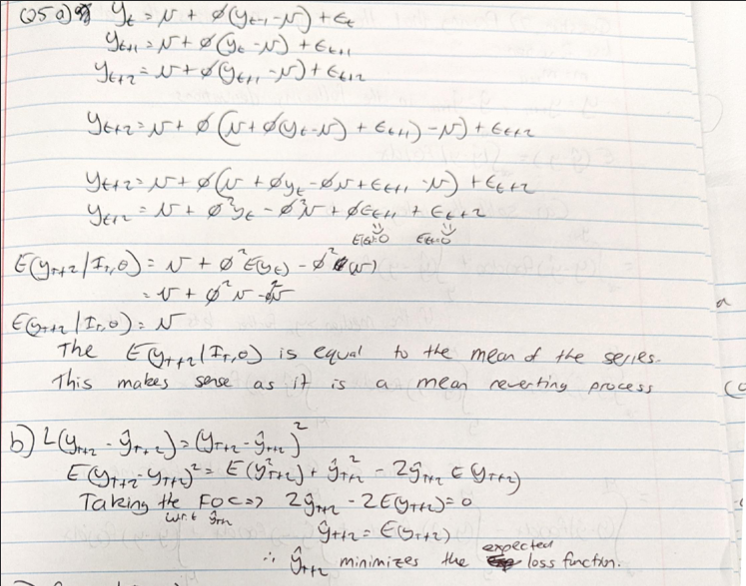 Q5 a) y_t = μ + φ(y_{t-1} - μ) + ε_t
y_{t+1} = μ + φ(y_t - μ) + ε_{t+1}
y_{t+2} = μ + φ(y_{t+1} - μ) + ε_{t+2}
y_{t+2} = μ + φ(μ + φ(y_t - μ) + ε_{t+1}) - μ) + ε_{t+2}
y_{t+2} = μ + φ(μ + φy_t - φμ + ε_{t+1} - μ) + ε_{t+2}
y_{t+2} = μ + φ²y_t - φ²μ + φε_{t+1} + ε_{t+2}
E(ε)=0 E(ε)=0
E(y_{T+2} | I_T, θ) = μ + φ²E(y_t) - φ²(μ)
= μ + φ²μ - φ²μ
E(y_{T+2} | I_T, θ) = μ
The E(y_{T+2} | I_T, θ) is equal to the mean of the series.
This makes sense as it is a mean reverting process
b) L(y_{T+2} - ŷ_{T+2}) = (y_{T+2} - ŷ_{T+2})²
E(y_{T+2} - y_{T+2})² = E(y²_{T+2}) + ŷ²_{T+2} - 2ŷ_{T+2} E(y_{T+2})
Taking the FOC => 2ŷ_{T+2} - 2E(y_{T+2}) = 0
w.r.t ŷ_{T+2}
ŷ_{T+2} = E(y_{T+2})
∴ ŷ_{T+2} minimizes the expected loss function.